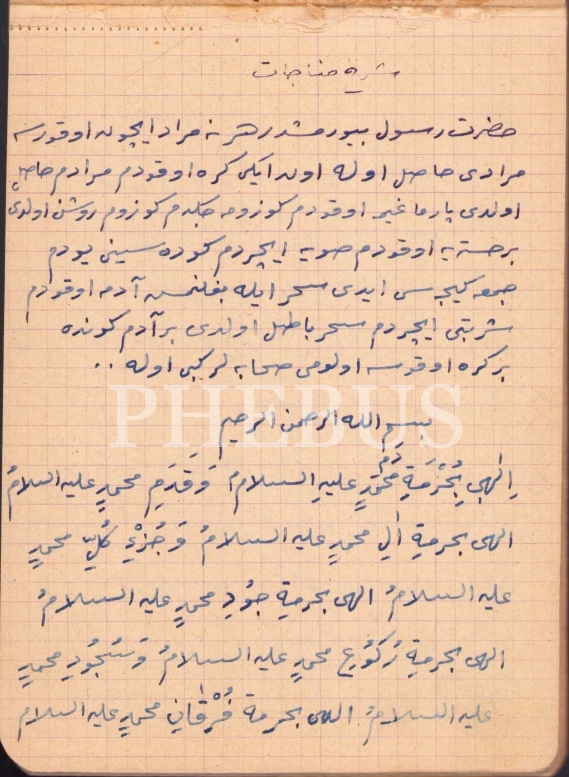 شرح مناجات
حضرت رسول بيورمشدر هر نه مراد ايچون اوقورسه
مرادى حاصل اوله اون ايكى كره اوقودم مرادم حاصل
اولدى پارماغمه اوقودم كوزومه چكدم كوزوم روشن اولدى
بر خسته يه اوقودم صويه ايچردم كوده سينى يودم
جمعه كيجه سى ايدى سحر ايله بغلنمش آدمه اوقودم
شربتى ايچردم سحر باطل اولدى بر آدم كونده
بر كره اوقوسه اولومى صحابه لر كبى اوله ..
PHEBUS
بسم الله الرحمن الرحيم
اِلٰهِى بِحُرْمَةِ دَمِ مُحَمَّدٍ عليهِ السلامُ وَقَدَمِ محمدٍ عليه السلامُ
الهى بحرمةِ اٰلِ محمدٍ عليه السلامُ وَجُزْءِ كُلِّ محمدٍ
عليه السلامُ الهى بحرمةِ جوُدِ محمدٍ عليه السلامُ
الهى بحرمةِ رُكوُعِ محمدٍ عليه السلامُ وَسُجُودِ محمدٍ
عليه السلامُ الهى بحرمة فُرْقَانِ محمدٍ عليه السلام